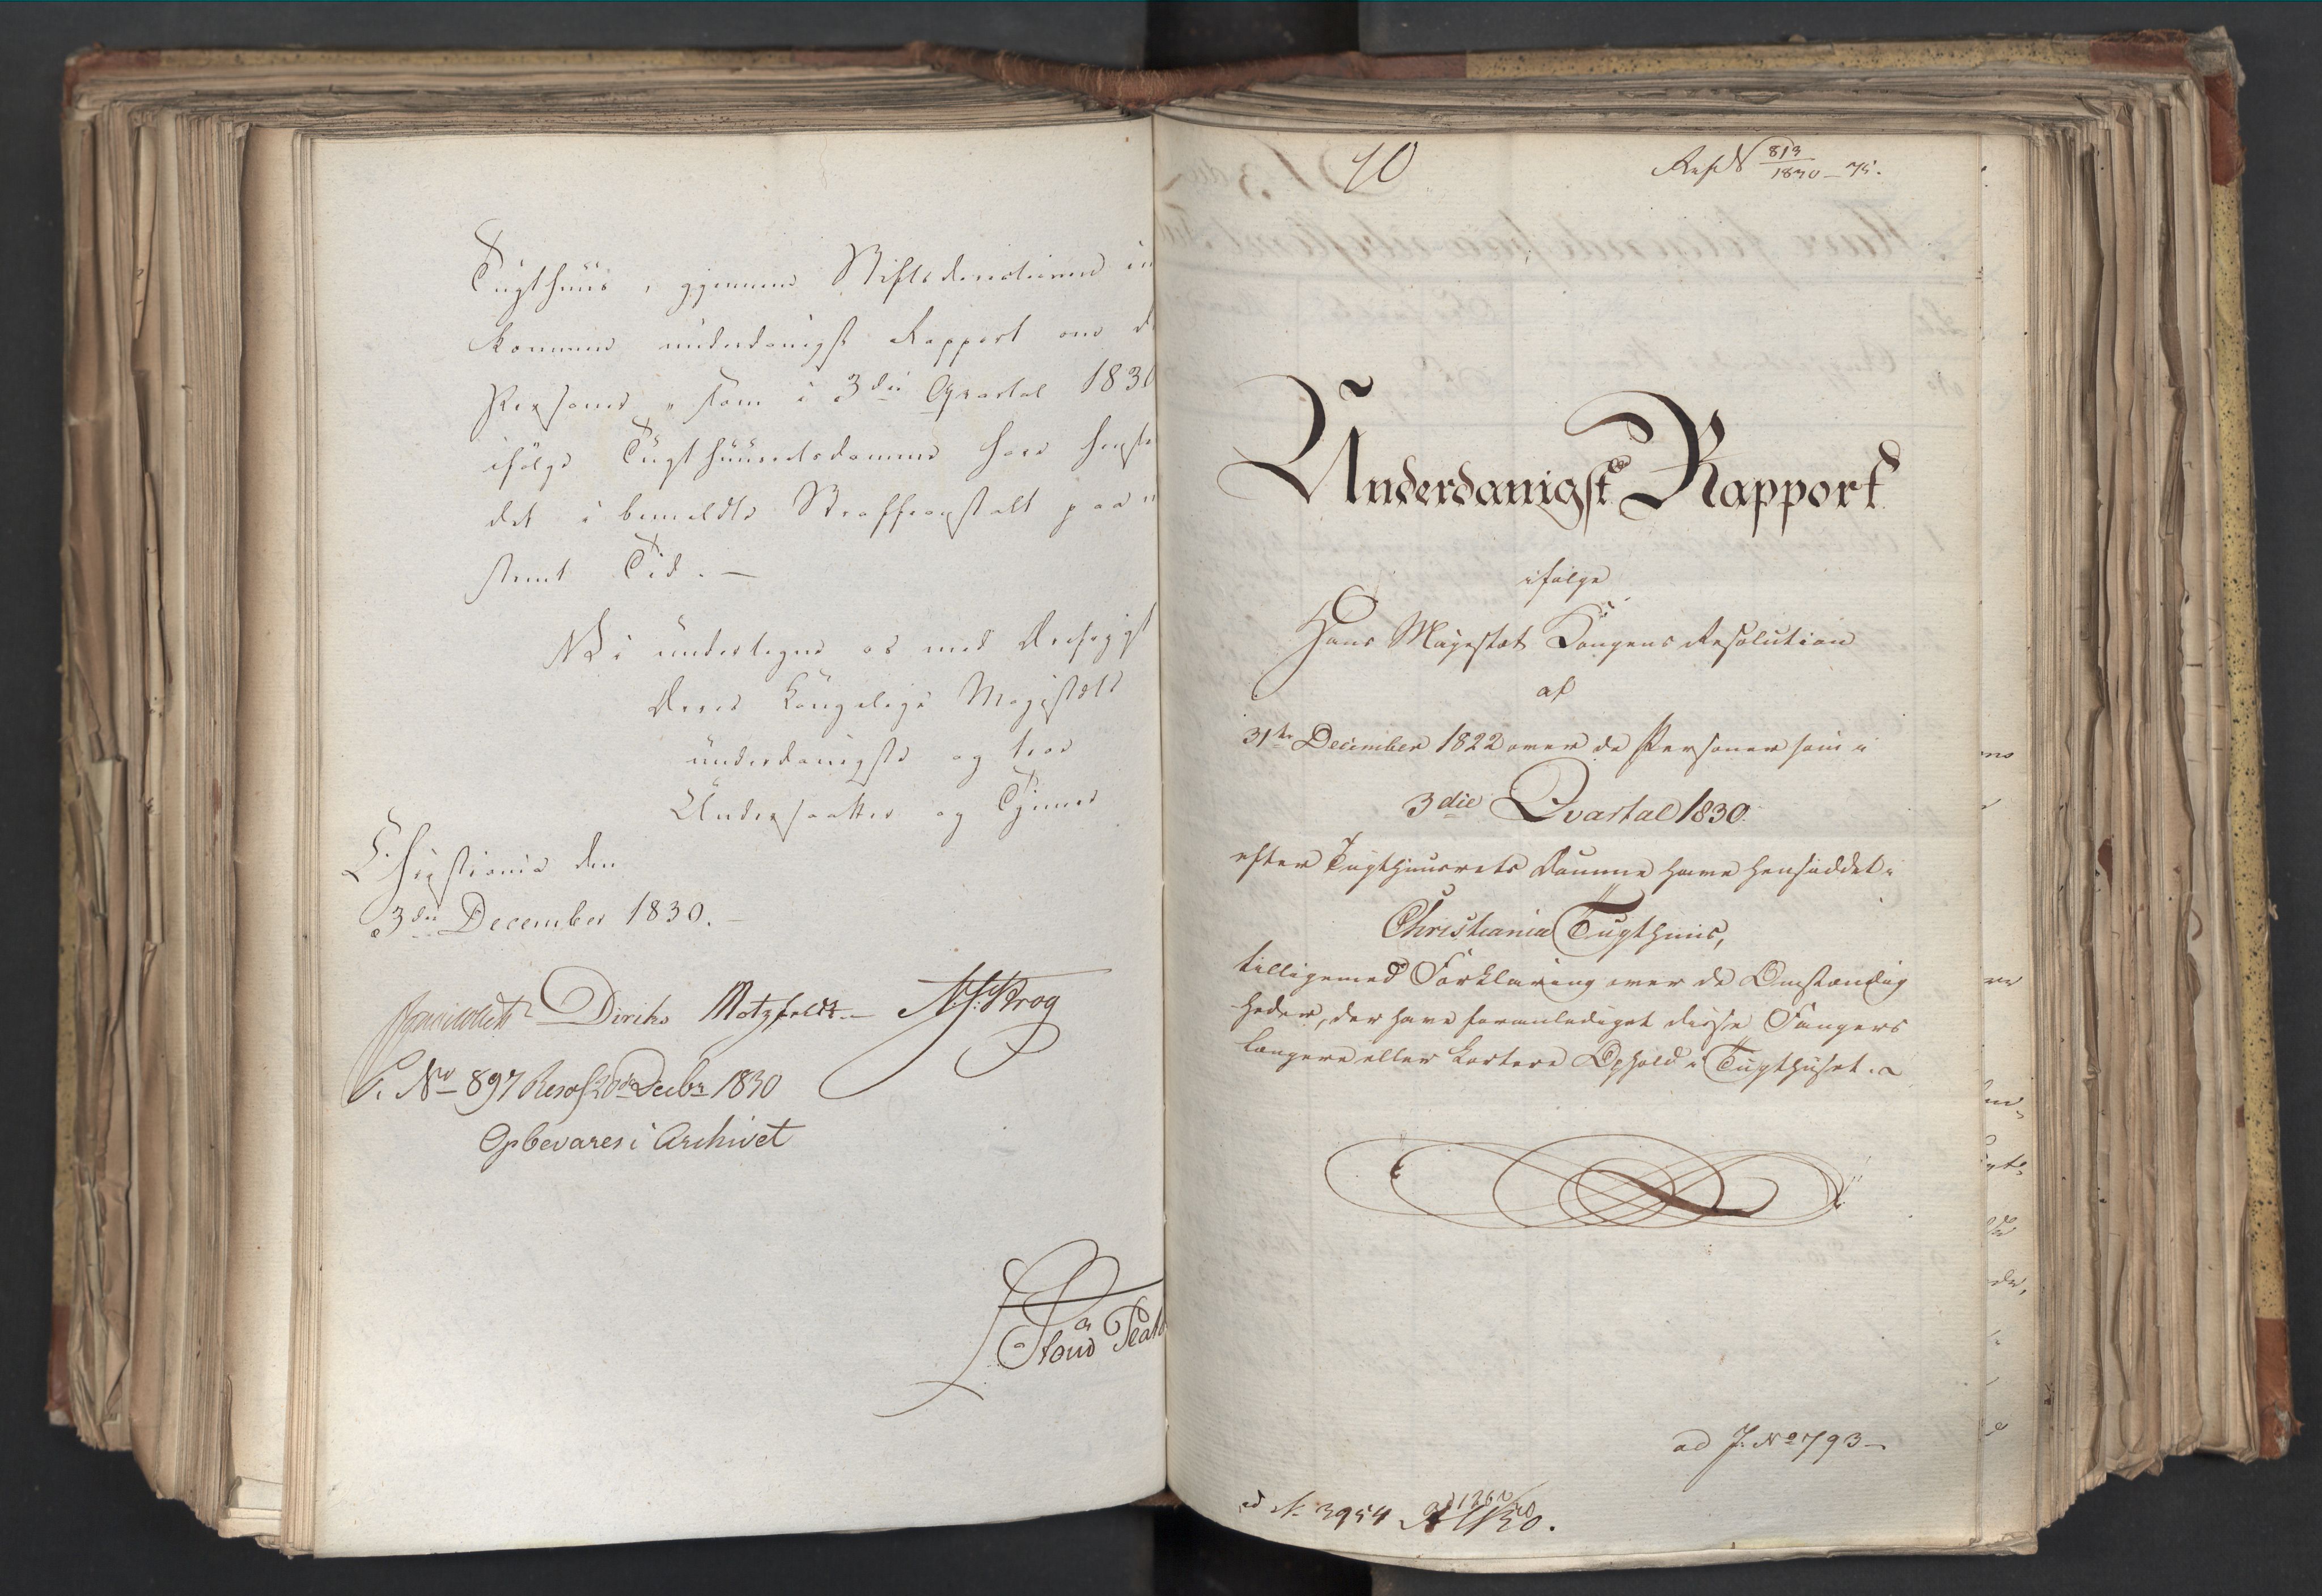 Tugthuus, gjennem Stiftsdirectionen ind
kommen underdanigst Rapport om de
Personer, som i 3die Qvartal 1830
ifølge Tugthuusretsdomme have hensid
det i bemeldte Straffeanstalt paa ube
stemt Tid. —
Vi undertegne os med Ærefrygt
Deres Kongelige Majestæts
underdanigste og troe
Undersaatter og Tjenere
Christiania den
3die December 1830. —
Diriks Motzfeldt. — Krog
P. No 897 Resol 20de Decbr 1830
Opbevares i Archivet
10
Ref No 813/1830 — 75.
Underdanigst Rapport
ifølge
Hans Majestæt Kongens Resolution
af
31te December 1822 over de Personer som i
3die Qvartal 1830.
efter Tugthuusrets Domme have hensiddet i
Christiania Tugthuus,
tilligemed Forklaring over de Omstændig
heder, der have foranlediget disse Fangers
længere eller kortere Ophold i Tugthuset.
ad J. No 793 —
ad No 3954